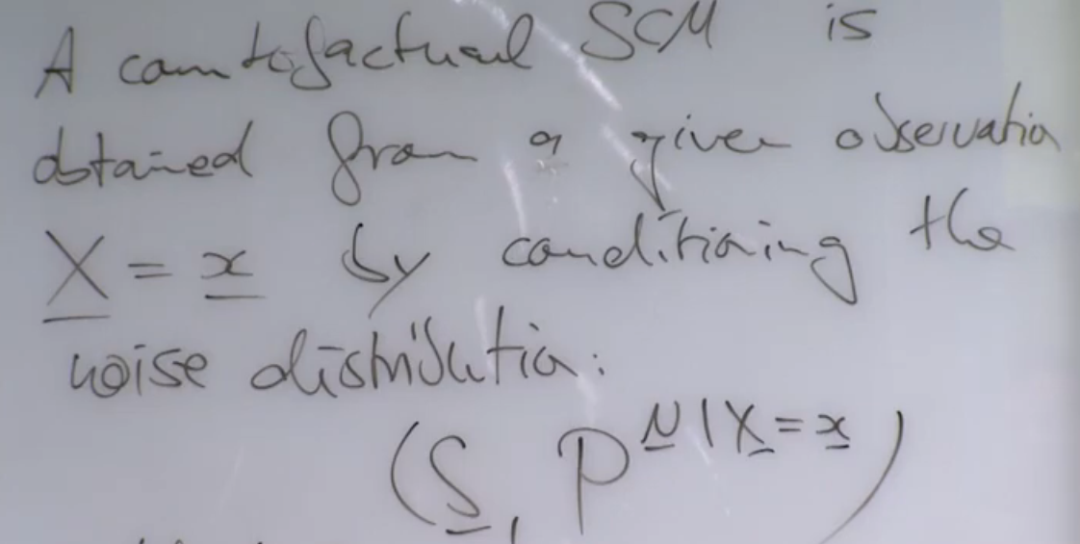 A counterfactual SCM is
obtained from a given observation
X = x by conditioning the
noise distribution:
(S, P^{N|X=x})